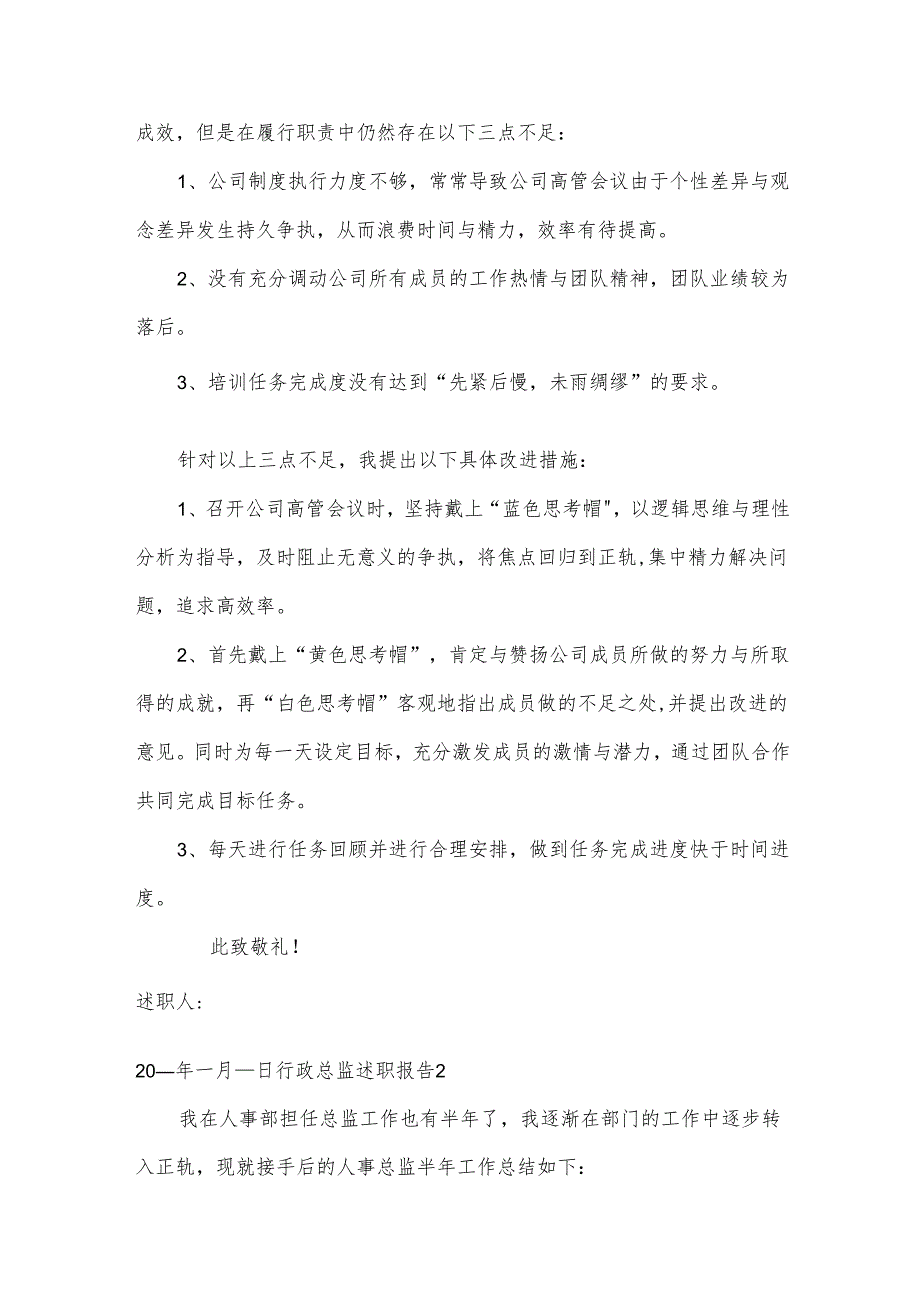 成效，但是在履行职责中仍然存在以下三点不足：
1、公司制度执行力度不够，常常导致公司高管会议由于个性差异与观
念差异发生持久争执，从而浪费时间与精力，效率有待提高。
2、没有充分调动公司所有成员的工作热情与团队精神，团队业绩较为
落后。
3、培训任务完成度没有达到“先紧后慢，未雨绸缪”的要求。
针对以上三点不足，我提出以下具体改进措施：
1、召开公司高管会议时，坚持戴上“蓝色思考帽"，以逻辑思维与理性
分析为指导，及时阻止无意义的争执，将焦点回归到正轨,集中精力解决问
题，追求高效率。
2、首先戴上“黄色思考帽”，肯定与赞扬公司成员所做的努力与所取
得的成就，再“白色思考帽”客观地指出成员做的不足之处,并提出改进的
意见。同时为每一天设定目标，充分激发成员的激情与潜力，通过团队合作
共同完成目标任务。
3、每天进行任务回顾并进行合理安排，做到任务完成进度快于时间进
度。
此致敬礼！
述职人：
20—年一月—日行政总监述职报告2
我在人事部担任总监工作也有半年了，我逐渐在部门的工作中逐步转
入正轨，现就接手后的人事总监半年工作总结如下：